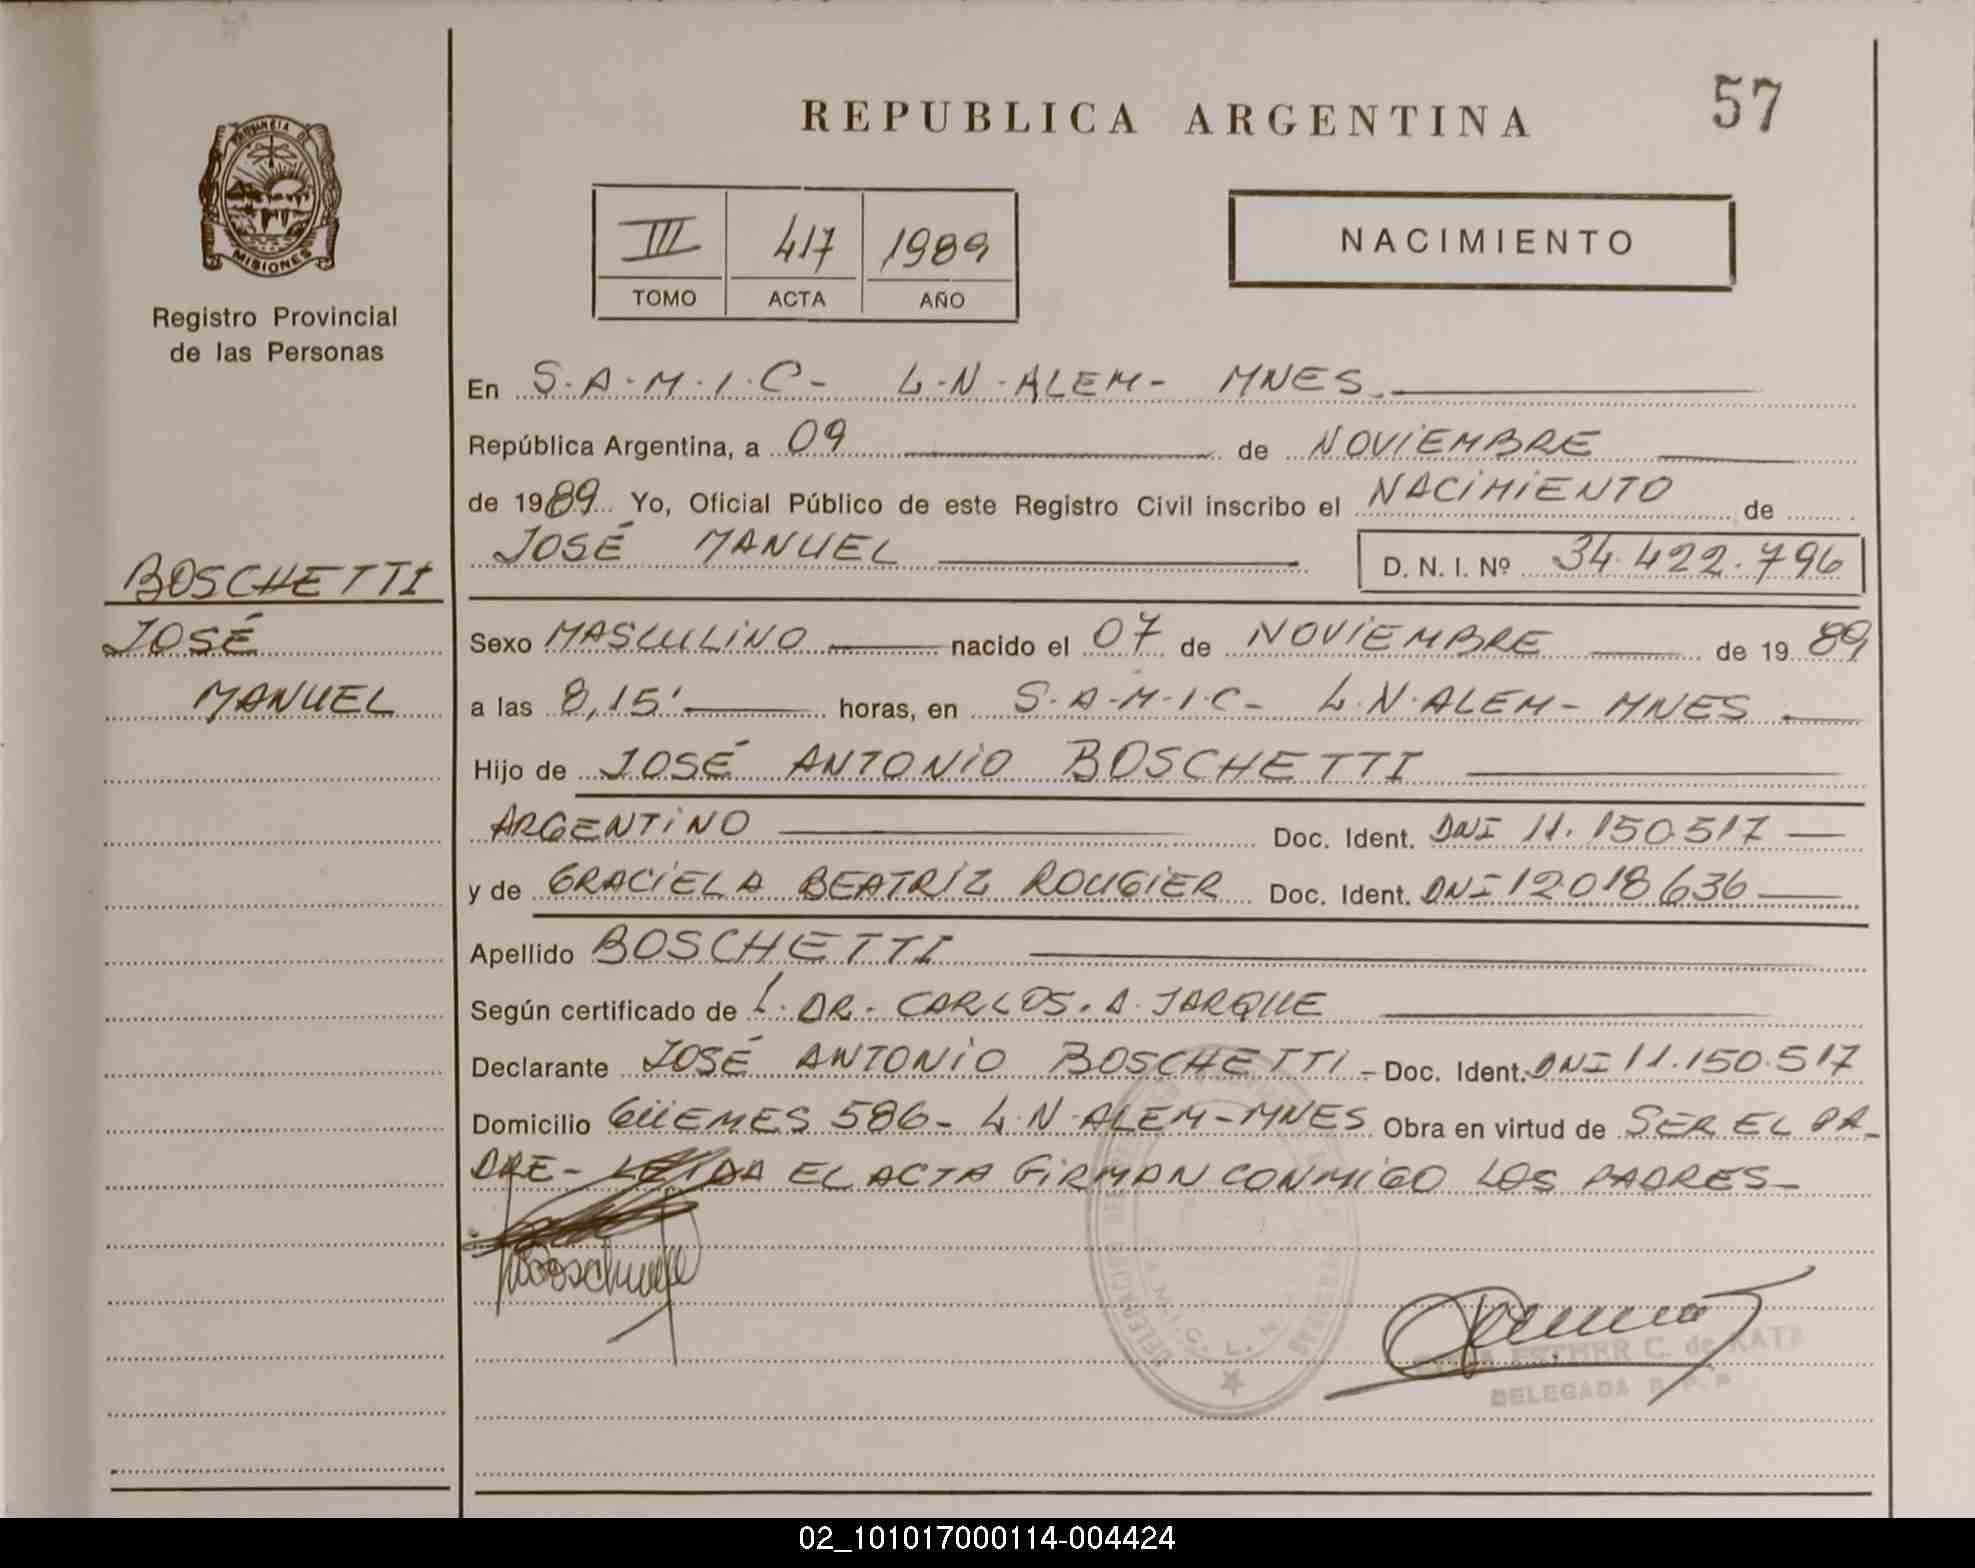 57
REPUBLICA ARGENTINA
PROVINCIA DE
MISIONES
Registro Provincial
de las Personas
III 417 1989
TOMO ACTA AÑO
NACIMIENTO
En S.A.M.I.C- L.N.ALEM- MNES.
República Argentina, a 09 de NOVIEMBRE
de 1989 Yo, Oficial Público de este Registro Civil inscribo el NACIMIENTO de
JOSÉ MANUEL D. N. I. Nº 34.422.796
BOSCHETTI
JOSÉ
MANUEL
Sexo MASCULINO nacido el 07 de NOVIEMBRE de 1989
a las 8,15' horas, en S.A.M.I.C- L.N.ALEM- MNES
Hijo de JOSÉ ANTONIO BOSCHETTI
ARGENTINO Doc. Ident. DNI 11.150.517
y de GRACIELA BEATRIZ ROUGIER Doc. Ident. DNI 12018636
Apellido BOSCHETTI
Según certificado de L. DR. CARLOS. A. JARQUE
Declarante JOSÉ ANTONIO BOSCHETTI - Doc. Ident. DNI 11.150.517
Domicilio GÜEMES 586- L.N.ALEM-MNES Obra en virtud de SER EL PA-
DRE- LEIDA EL ACTA FIRMAN CONMIGO LOS PADRES-
ESTHER C. de KATZ
DELEGADA R.P.P
02_101017000114-004424